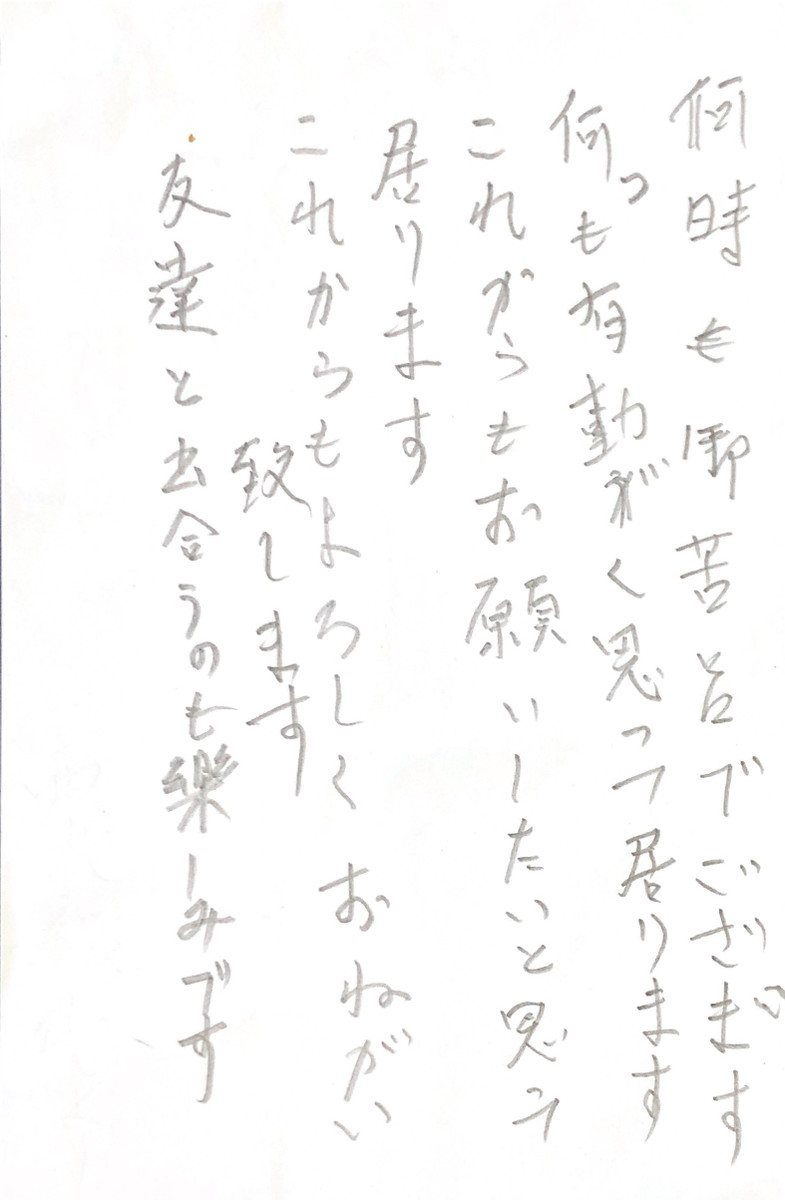 何時も御苦吕でございます
何っも有動がく思って居ります
これがらもお願いしたいと思う
居ります
これからもよろしくおねがい
致します
友達と出合うのも樂しみです